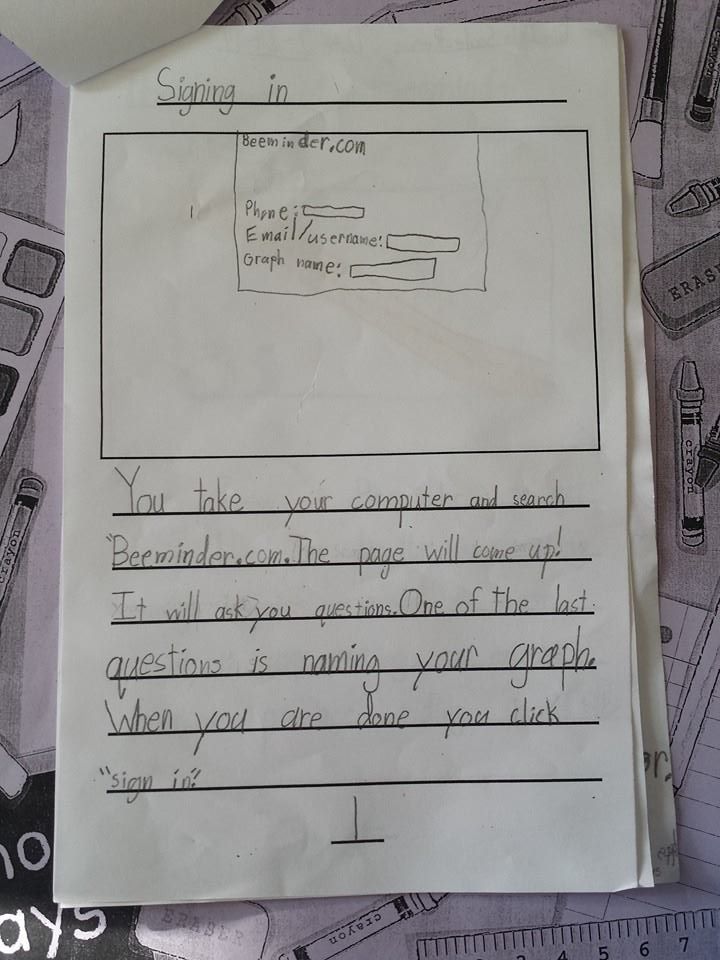 Signing in
Beeminder.com
Phone:
Email/username:
Graph name:
You take your computer and search
"Beeminder.com. The page will come up!
It will ask you questions. One of the last
questions is naming your graph.
When you are done you click
"sign in."
1
ERAS
crayon
crayon
ays
ERASER
crayon
4 5 6 7